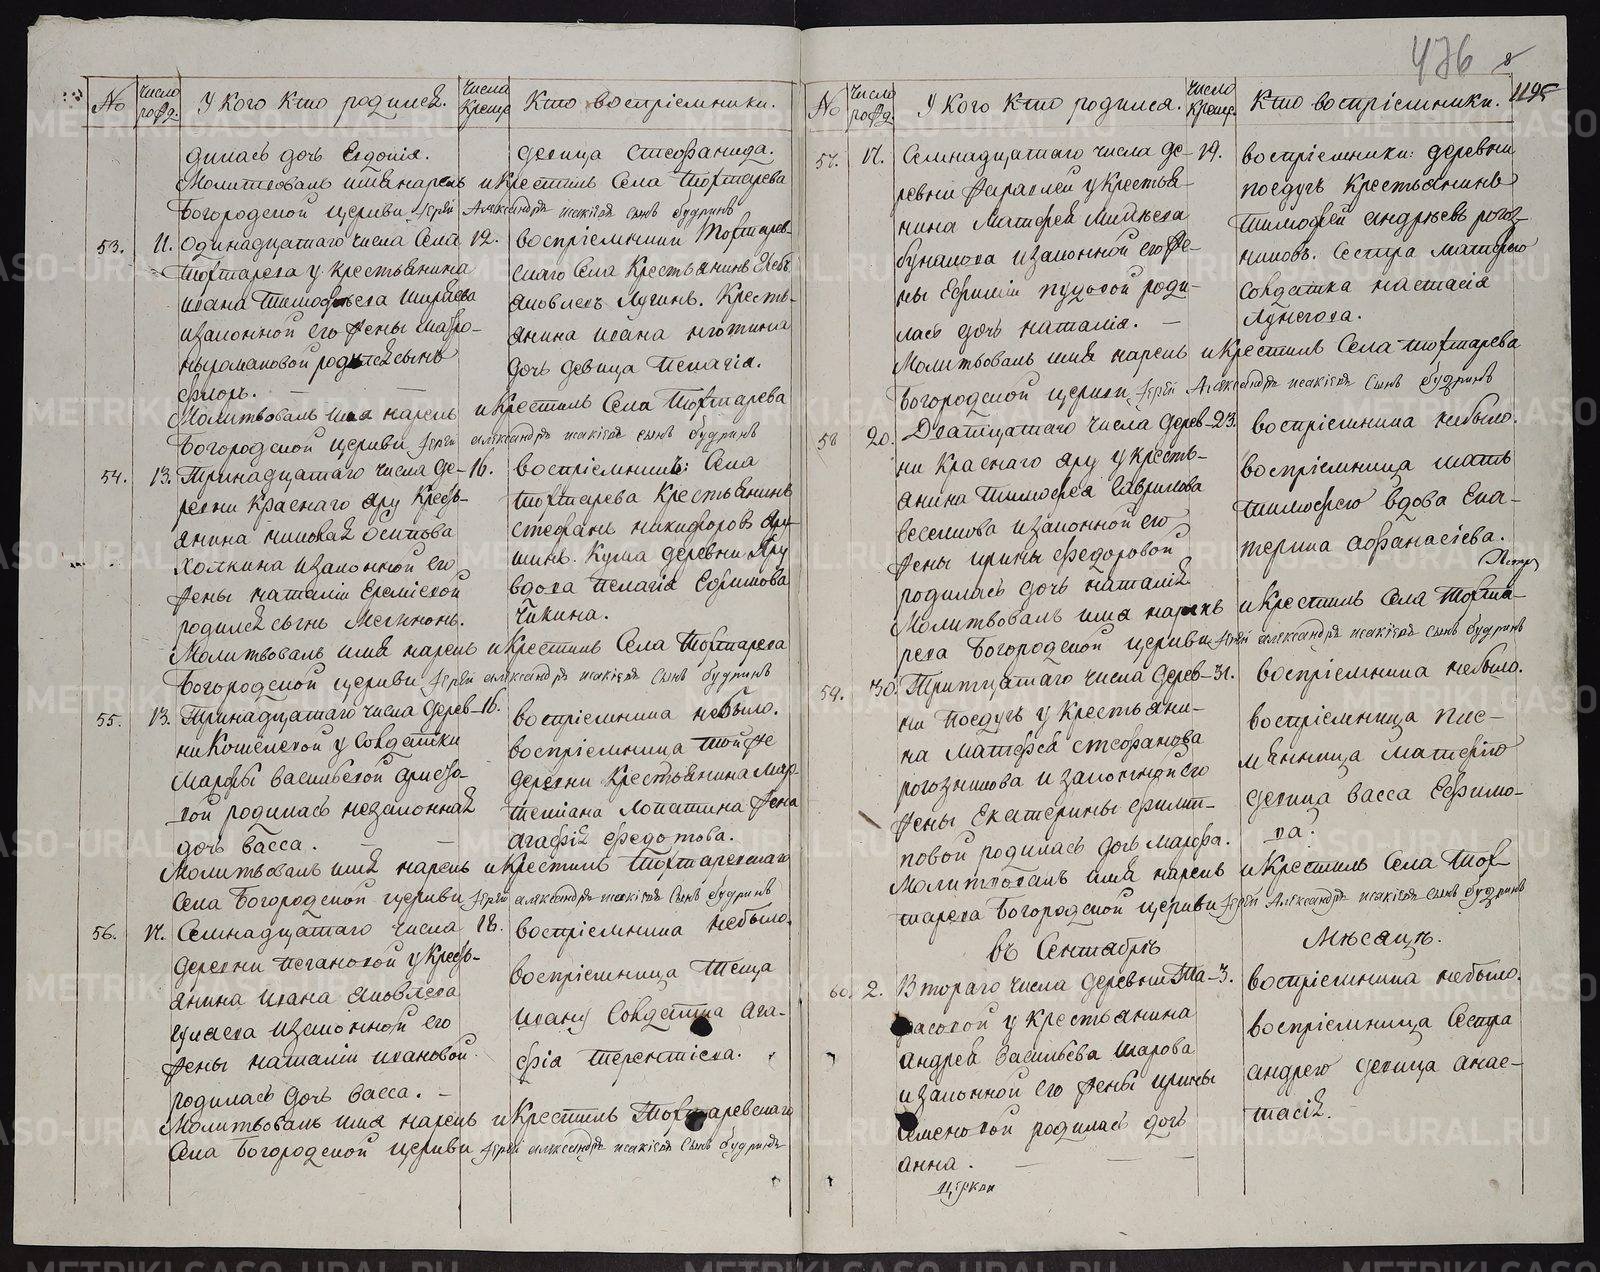 476
1195
No
Число рожд.
У кого кто родился.
Числа Крещ.
Кто воспріемники.
дилась дочь Евдокія.
девица Стефанида.
Молитвовалъ имя нарекъ и Крестилъ Села Тохтарева
Богородской церкви Іерей Александръ Іоакіевъ сынъ Будринъ
53.
11.
Одинадцатаго числа Села
Тохтарева у крестьянина
Ивана Тимофеева Ширяева
и законной его жены Матро-
ны романовой родился сынъ
Флоръ.
12.
воспріемники Тохтарев-
скаго Села Крестьянинъ Глебъ
Яковлевъ Лузинъ. Кресть-
янина Ивана
дочь девица Пелагія.
Молитвовалъ имя нарекъ и Крестилъ Села Тохтарева
Богородской церкви Іерей Александръ Іоакіевъ сынъ Будринъ
54.
13.
Тринадцатаго числа де-
ревни Краснаго Яру Кресть-
янина Николая Осипова
Холкина и законной его
жены Наталіи Еремѣевой
родился сынъ
16.
воспріемникъ: Села
Тохтарева Крестьянинъ
Стефанъ Никифоровъ Яру-
шинъ. Кума деревни Яру
вдова Пелагія Ефимова
Чикина.
Молитвовалъ имя нарекъ и Крестилъ Села Тохтарева
Богородской церкви Іерей Александръ Іоакіевъ Сынъ Будринъ
55.
13.
Тринадцатаго числа дерев-
ни Кошелевой у Солдатки
Марфы васильевой
вой родилась незаконная
дочь Васса.
16.
воспріемника небыло.
воспріемница тойже
деревни Крестьянина Мар-
темiана Лопатина жена
Агафія Федотова.
Молитвовалъ имя нарекъ и Крестилъ Тохтаревскаго
Села Богородской церкви Іерей Александръ Іоакіевъ Сынъ Будринъ
56.
17.
Семнадцатаго числа
деревни Пегановой у Кресть-
янина Ивана Яковлева
Гуляева и законной его
жены Наталіи Ивановой
родилась дочь Васса.
18.
воспріемника небыло.
воспріемница теща
Ивану Солдатка Ага-
фія Терентіева.
Молитвовалъ имя нарекъ и Крестилъ Тохтаревскаго
Села Богородской церкви Іерей Александръ Іоакіевъ Сынъ Будринъ
No
Число рожд.
У кого кто родился.
Число Крещ.
Кто воспріемники.
57.
17.
Семнадцатаго числа де-
ревни у Крестья-
нина Матфея Михѣева
Бунакова и законной его же-
ны Ефиміи Пудовой роди-
лась дочь Наталія.
19.
воспріемники: деревни
Поедугъ Крестьянинъ
Тимофей Андрѣевъ Рогоз-
никовъ. Сестра Матфею
Солдатка Настасія
Лунегова.
Молитвовалъ имя нарекъ и Крестилъ Села Тохтарева
Богородской церкви Іерей Александръ Іоакіевъ Сынъ Будринъ
58
20.
Дватцатаго числа дерев-
ни Краснаго Яру у Кресть-
янина Тимофея Гаврилова
Веселкова и законной его
жены Ирины Федоровой
родилась дочь Наталія
23.
воспріемника небыло.
воспріемница мать
Тимофею вдова Ека-
терина Афанасіева.
Молитвовалъ имя нарекъ и Крестилъ Села Тохта-
рева Богородской церкви Іерей Александръ Іоакіевъ Сынъ Будринъ
59.
30.
Тритцатаго числа дерев-
ни Поедугъ у Крестьяни-
на Матфея Стефанова
Рогозникова и законной его
жены Екатерины Филип-
повой родилась дочь Марфа.
31.
воспріемника небыло.
воспріемница пле-
мянница Матфею
девица Васса Ефимо-
ва.
Молитвовалъ имя нарекъ и Крестилъ Села Тох-
тарева Богородской церкви Іерей Александръ Іоакіевъ Сынъ Будринъ
въ Сентябрѣ
Мѣсяцѣ.
60.
2.
Втораго числа деревни Та-
расовой у Крестьянина
Андрея Васильева Шарова
и законной его жены Ирины
Семеновой родилась дочь
Анна.
3.
воспріемника небыло.
воспріемница Сестра
Андрею девица Анас-
тасія.
церкви